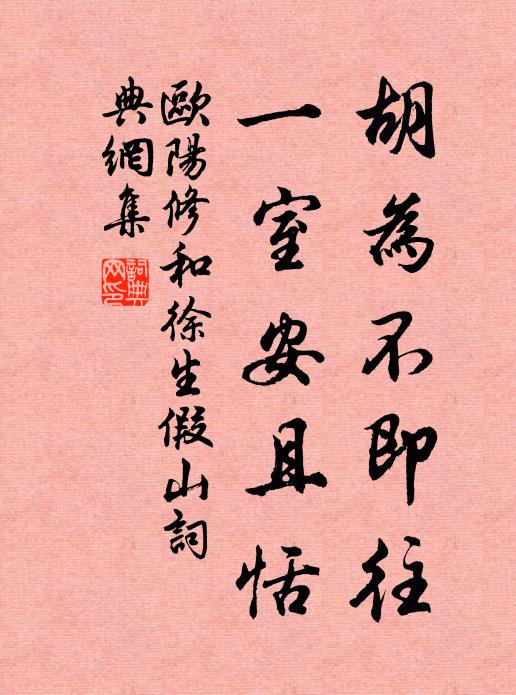 胡為不即往
一室安且恬
歐陽修和徐生假山詞
典網集
詞典网印